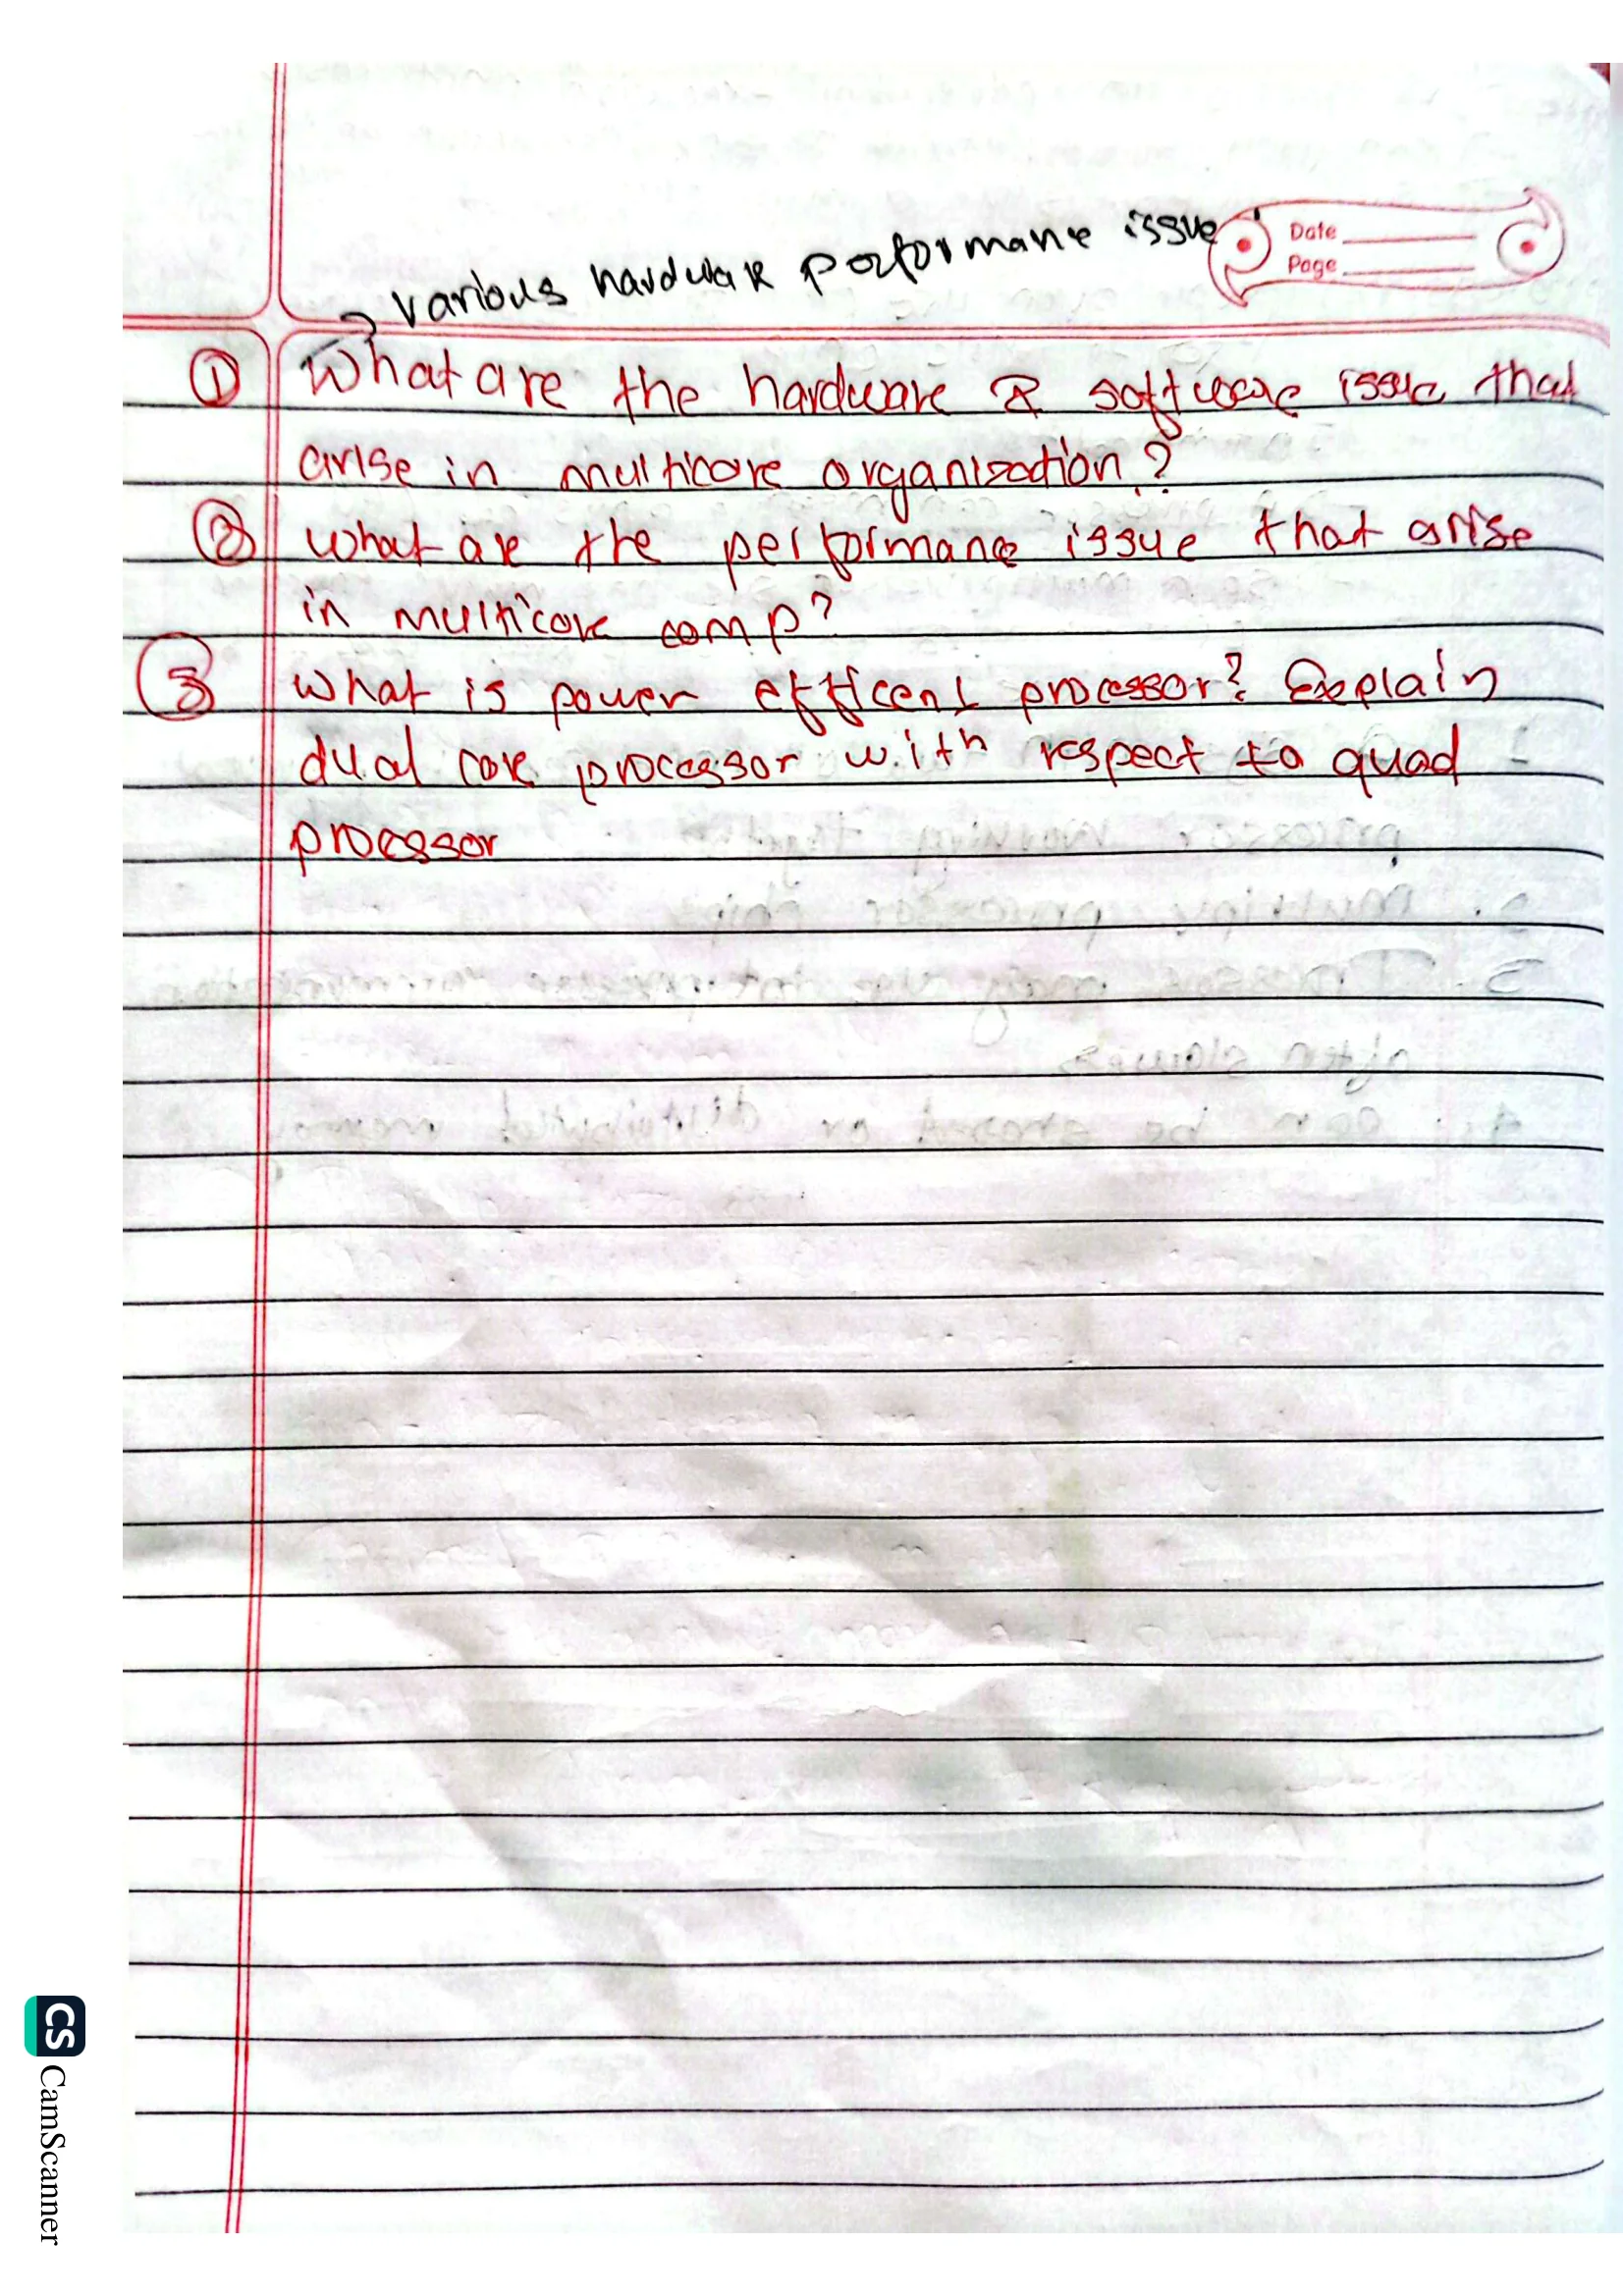 → various hardware performance issue
Date
Page
① What are the hardware & software issue that
arise in multicore organization?
② What are the performance issue that arise
in multicore comp?
③ What is power efficent processor? Explain
dual core processor with respect to quad
processor
CS CamScanner